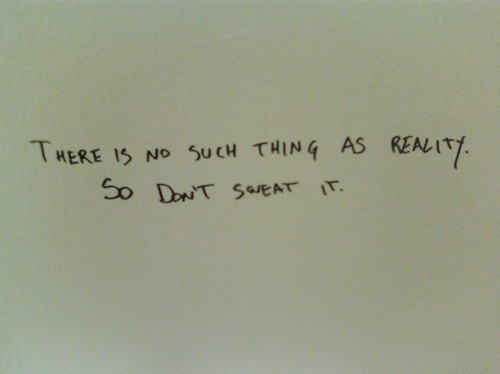 THERE IS NO SUCH THING AS REALITY.
SO DON'T SWEAT IT.